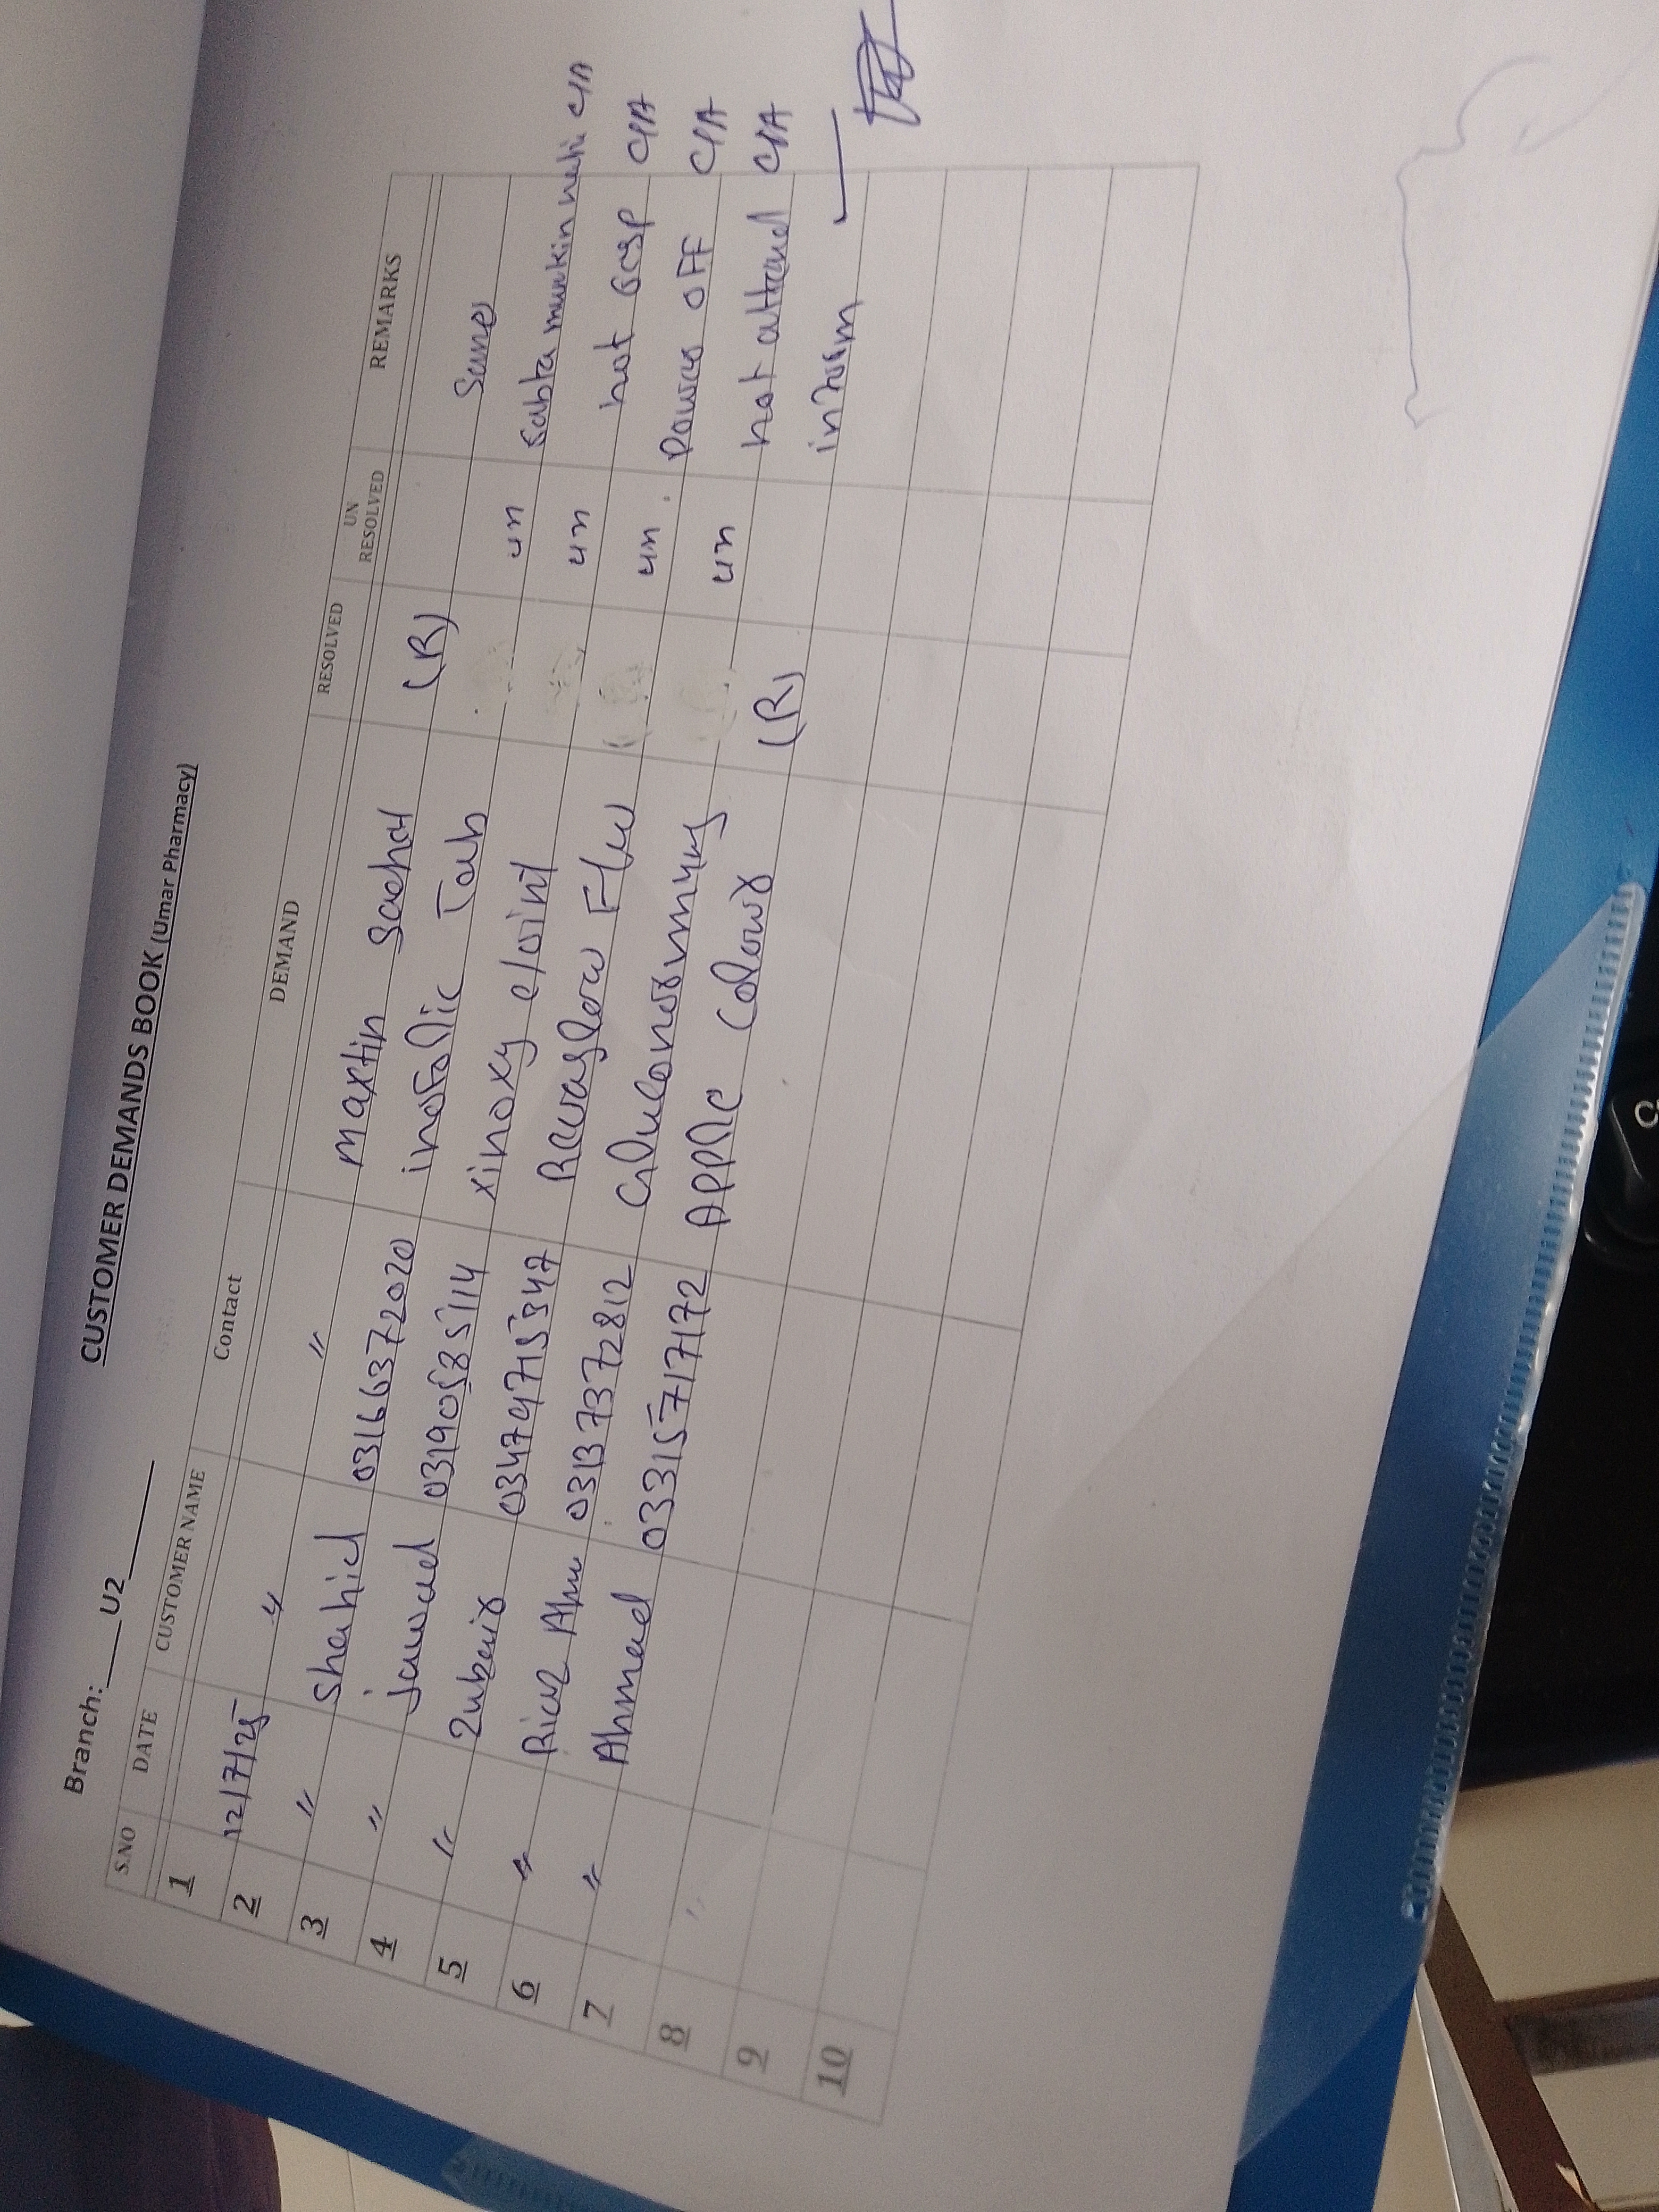 CUSTOMER DEMANDS BOOK (Umar Pharmacy)
Branch: U2
S.NO DATE CUSTOMER NAME Contact DEMAND RESOLVED UN RESOLVED REMARKS
1
2 12/7/25 " " Maxtin Sachat (R) Same
3 " Shahid 03166372020 inofolic Tab un Sabta mumkin nahi C/A
4 " Jawad 0319 5114 xinoxy e/oint un not resp C/A
5 " Zubair 03479715347 Flw un Power OFF C/A
6 " Riaz Ahm 03137372812 un not attend C/A
7 " Ahmad 03315717172 Apple Colour (R) inform
8 "
9
10